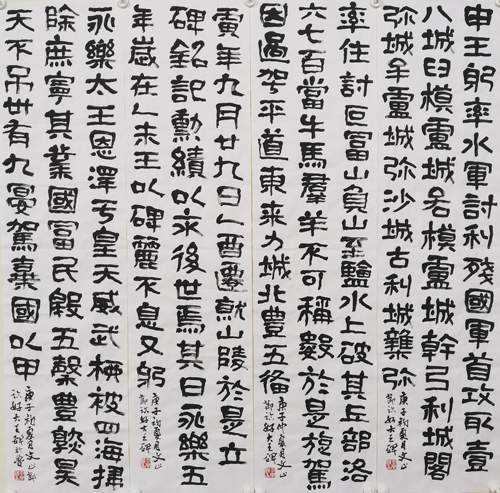 申王躬率水軍討利殘國軍首攻取壹
八城臼模盧城各模盧城幹弓利城閣
弥城牟盧城弥沙城古利城雜弥
庚子初夏月文山
好大王碑
率住討叵富山負山至鹽水上破其丘部洛
六七百當牛馬羣羊不可稱數於是旋駕
因過平道東来力城北豊五备
庚子仲夏月文山
好大王碑
寅年九月廿九日乙酉遷就山陵於是立
碑銘記勳績以永後世焉其曰永樂五
年歲在乙未王以碑麗不息又躬
庚子初夏月文山
好大王碑
永樂太王恩澤于皇天威武柳被四海掃
除庶寧其業國富民殷五穀豊熟昊
天不吊卅有九宴駕棄國以甲
庚子初夏月文山
好大王碑